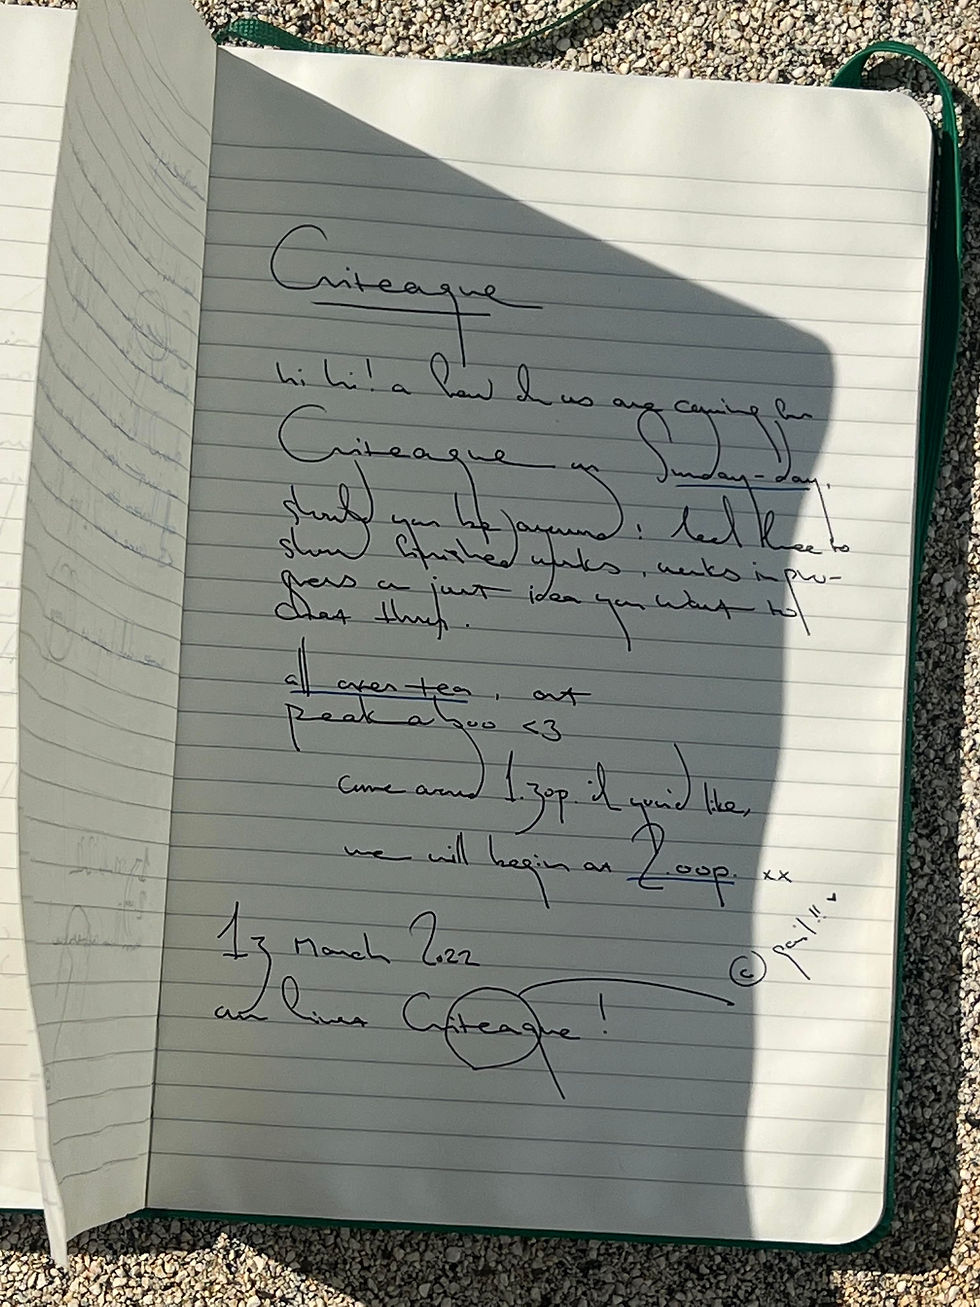 Criteaque
hi hi! a few of us are coming for
Criteaque on Sunday-day,
should you be around: feel free to
show finished works, works in pro-
gress or just idea you want to
chat thru.
all over tea, and
peak a boo <3
come around 1.30p. if you'd like,
we will begin at 2.00p. xx
13 March 2022
our first Criteaque!
@ gail!!